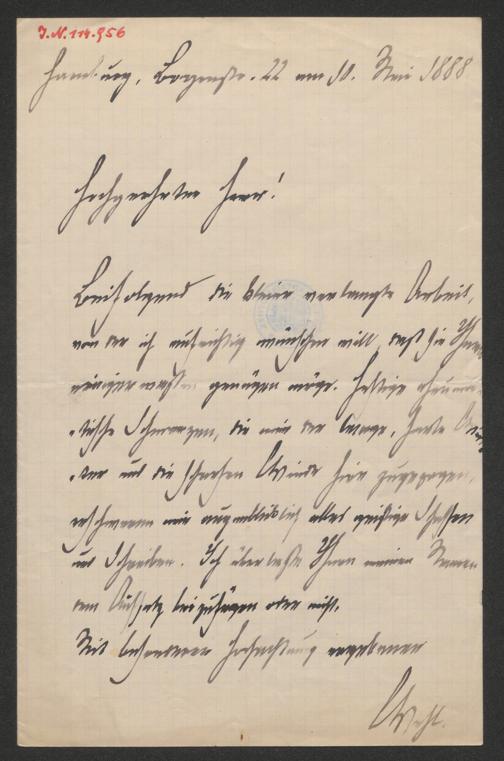 J.N. 114.956
Hamburg, Borgenstr. 22 am 10. Mai 1888
Hochgeehrter Herr!
Beifolgend die kleine verlangte Arbeit,
von der ich aufrichtig wünschen will, daß sie Ihnen
einigermaßen genügen möge. Heftige rheuma-
tische Schmerzen, die mir der lange, harte
-ter und die scharfen Winde hier zugezogen,
erschweren mir augenblicklich alles geistige Schaffen
und Schreiben. Ich überlasse Ihnen meinen Namen
dem Aufsatz beizufügen oder nicht.
Mit besonderer Hochachtung ergebener
Wehl.